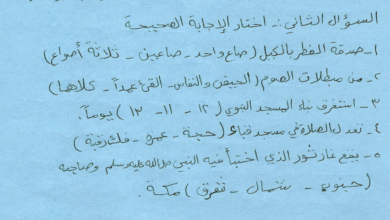 السؤال الثاني:- اختار الإجابة الصحيحة
١- صدقة الفطر بالكيل (صاع واحد - صاعين - ثلاثة أصواع)
٢- من مبطلات الصوم (الحيض والنفاس - القئ عمداً - كلاهما)
٣- استغرق بناء المسجد النبوي (١٢ - ١١ - ١٣) يوماً.
٤- تعدل الصلاة في مسجد قباء (حجة - عمرة - فك رقبة)
٥- يقع غار ثور الذي اختبأ فيه النبي صلى الله عليه وسلم وصاحبه
(جنوب - شمال - شرق) مكة.